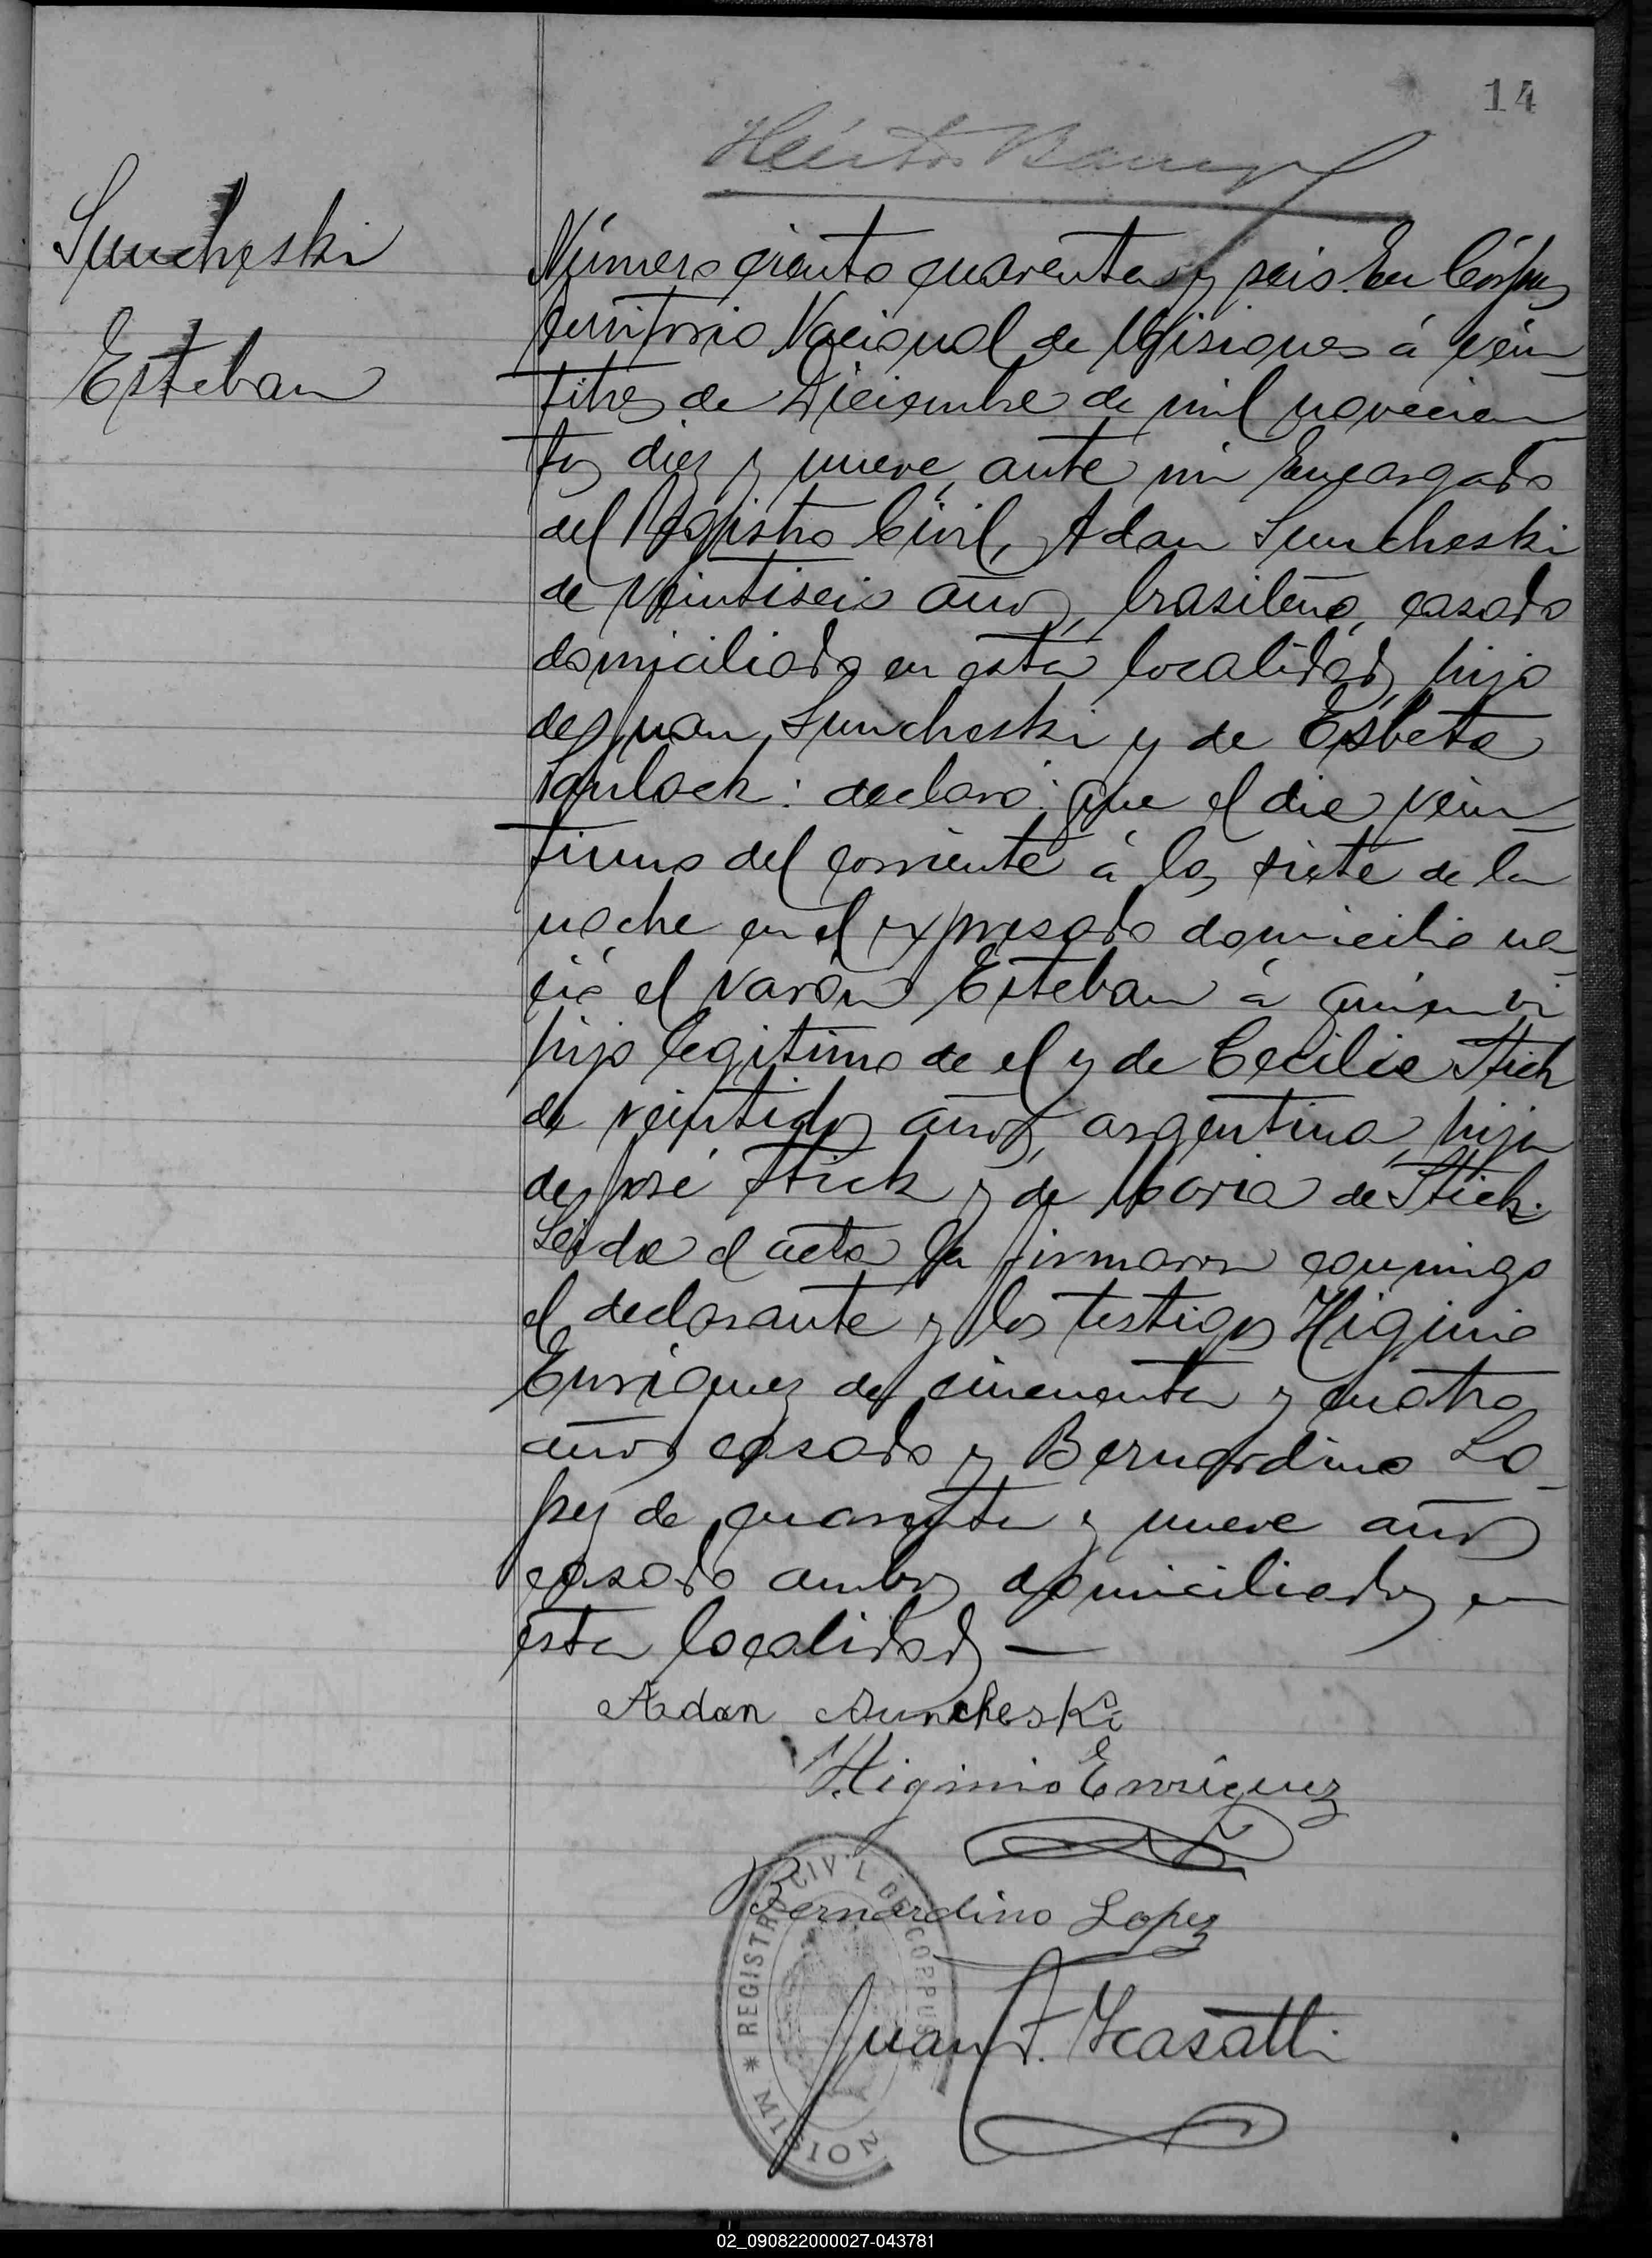 14
Suncheski
Esteban
Número ciento cuarenta y seis. En Córpus
territorio Nacional de Misiones á vein
titres de Diciembre de mil novecien
tos diez y nueve, ante mi Encargado
del Registro Civil, Adan Suncheski
de veintiseis años, brasileño, casado
domiciliado en esta localidad, hijo
de Juan Suncheski y de Esbeta
declaró: que el dia vein
tiuno del corriente á las siete de la
noche en el expresado domicilio na
ció el varón Esteban á quien vi
hijo legitimo de el y de Cecilia Stich
de veintidos años, argentina, hija
de José Stich y de Maria de Stich.
Leida el acta la firmaron conmigo
el declarante y los testigos Higinio
Enriquez de cincuenta y cuatro
años casado y Bernardino Lo
pez de cuarenta y nueve años
casado ambos domiciliados en
esta localidad —
Adan Suncheski
Higinio Enriquez
Bernardino Lopez
Juan F.
REGISTRO CIVIL DE CORPUS
* MISION
02_090822000027-043781